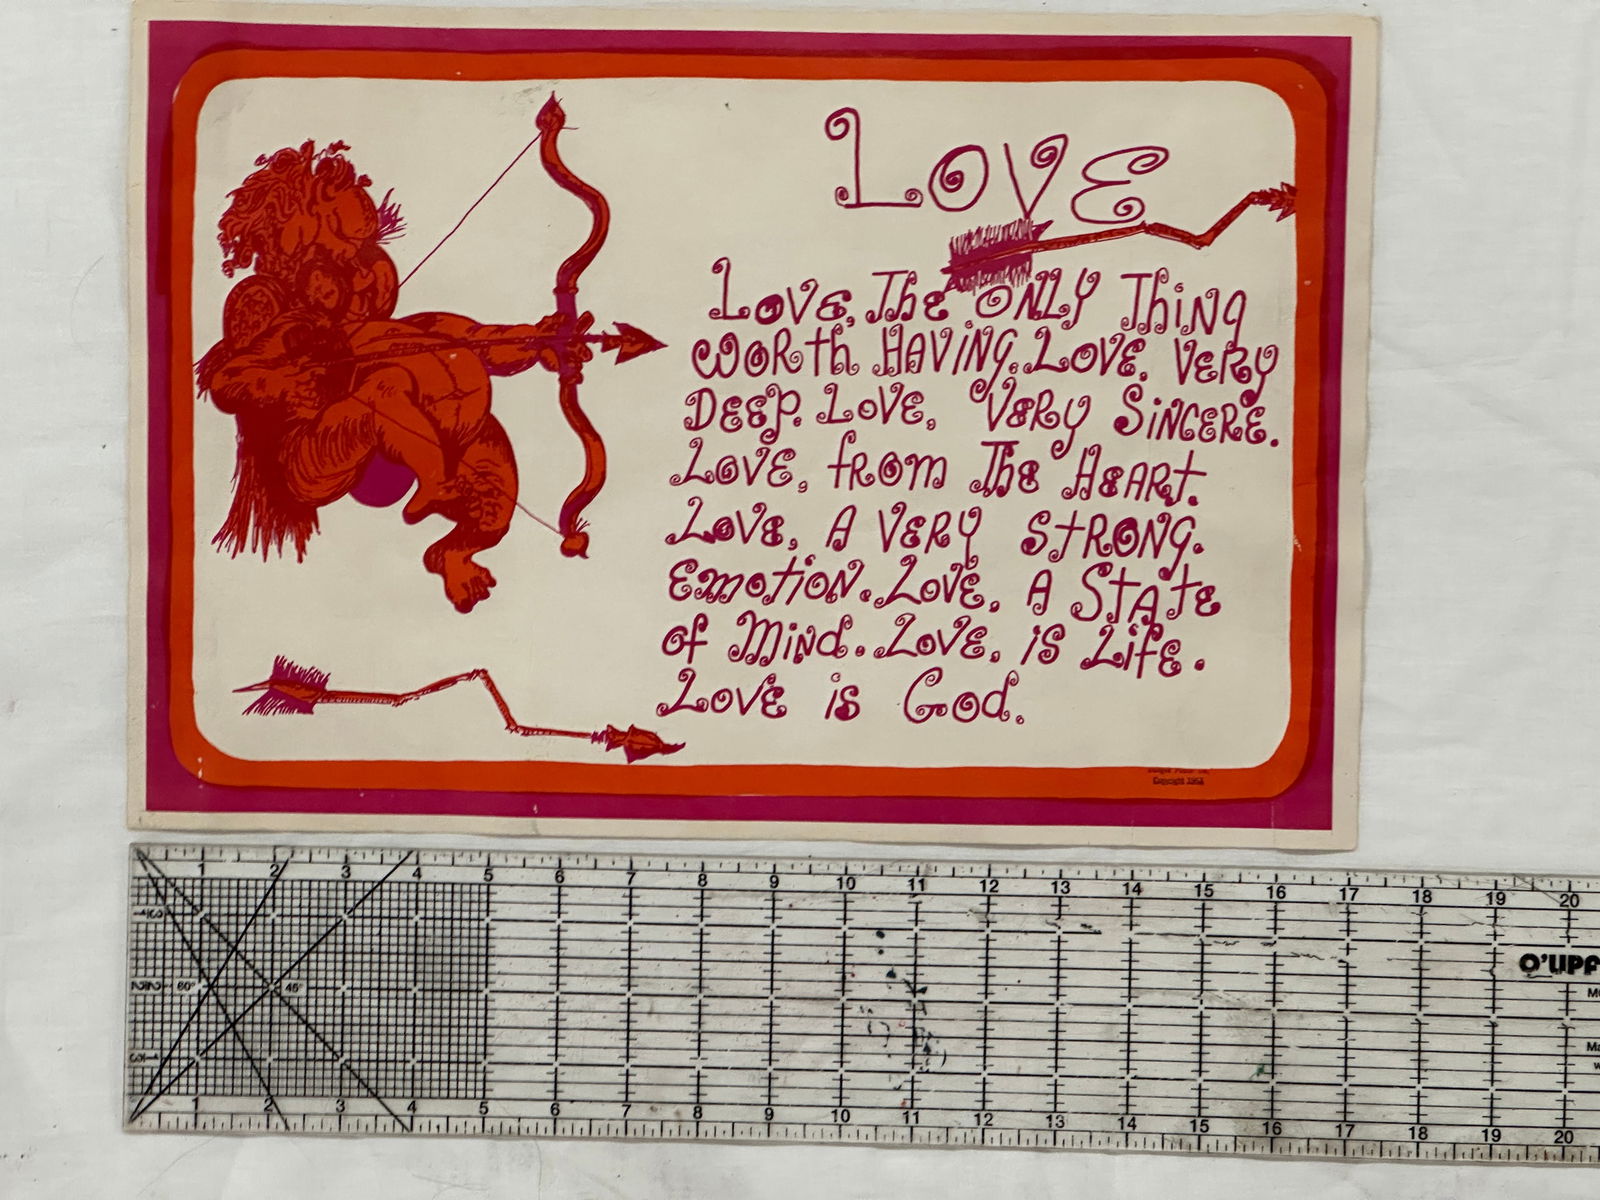 LOVE
LOVE, The ONLY Thing
WORth HAVING. LOVE. VERY
DEEP. LOVE, VERY SiNCERE.
LOVE, from The HEART.
LOVE, A VERY StRONG.
EmotioN. LOVE, A StAte
of Mind. LOVE, is Life.
LOVE is God.
Copyright 1968
1 2 3 4 5 6 7 8 9 10 11 12 13 14 15 16 17 18 19 20
60° 45°
1 2 3 4 5 6 7 8 9 10 11 12 13 14 15 16 17 18 19 20